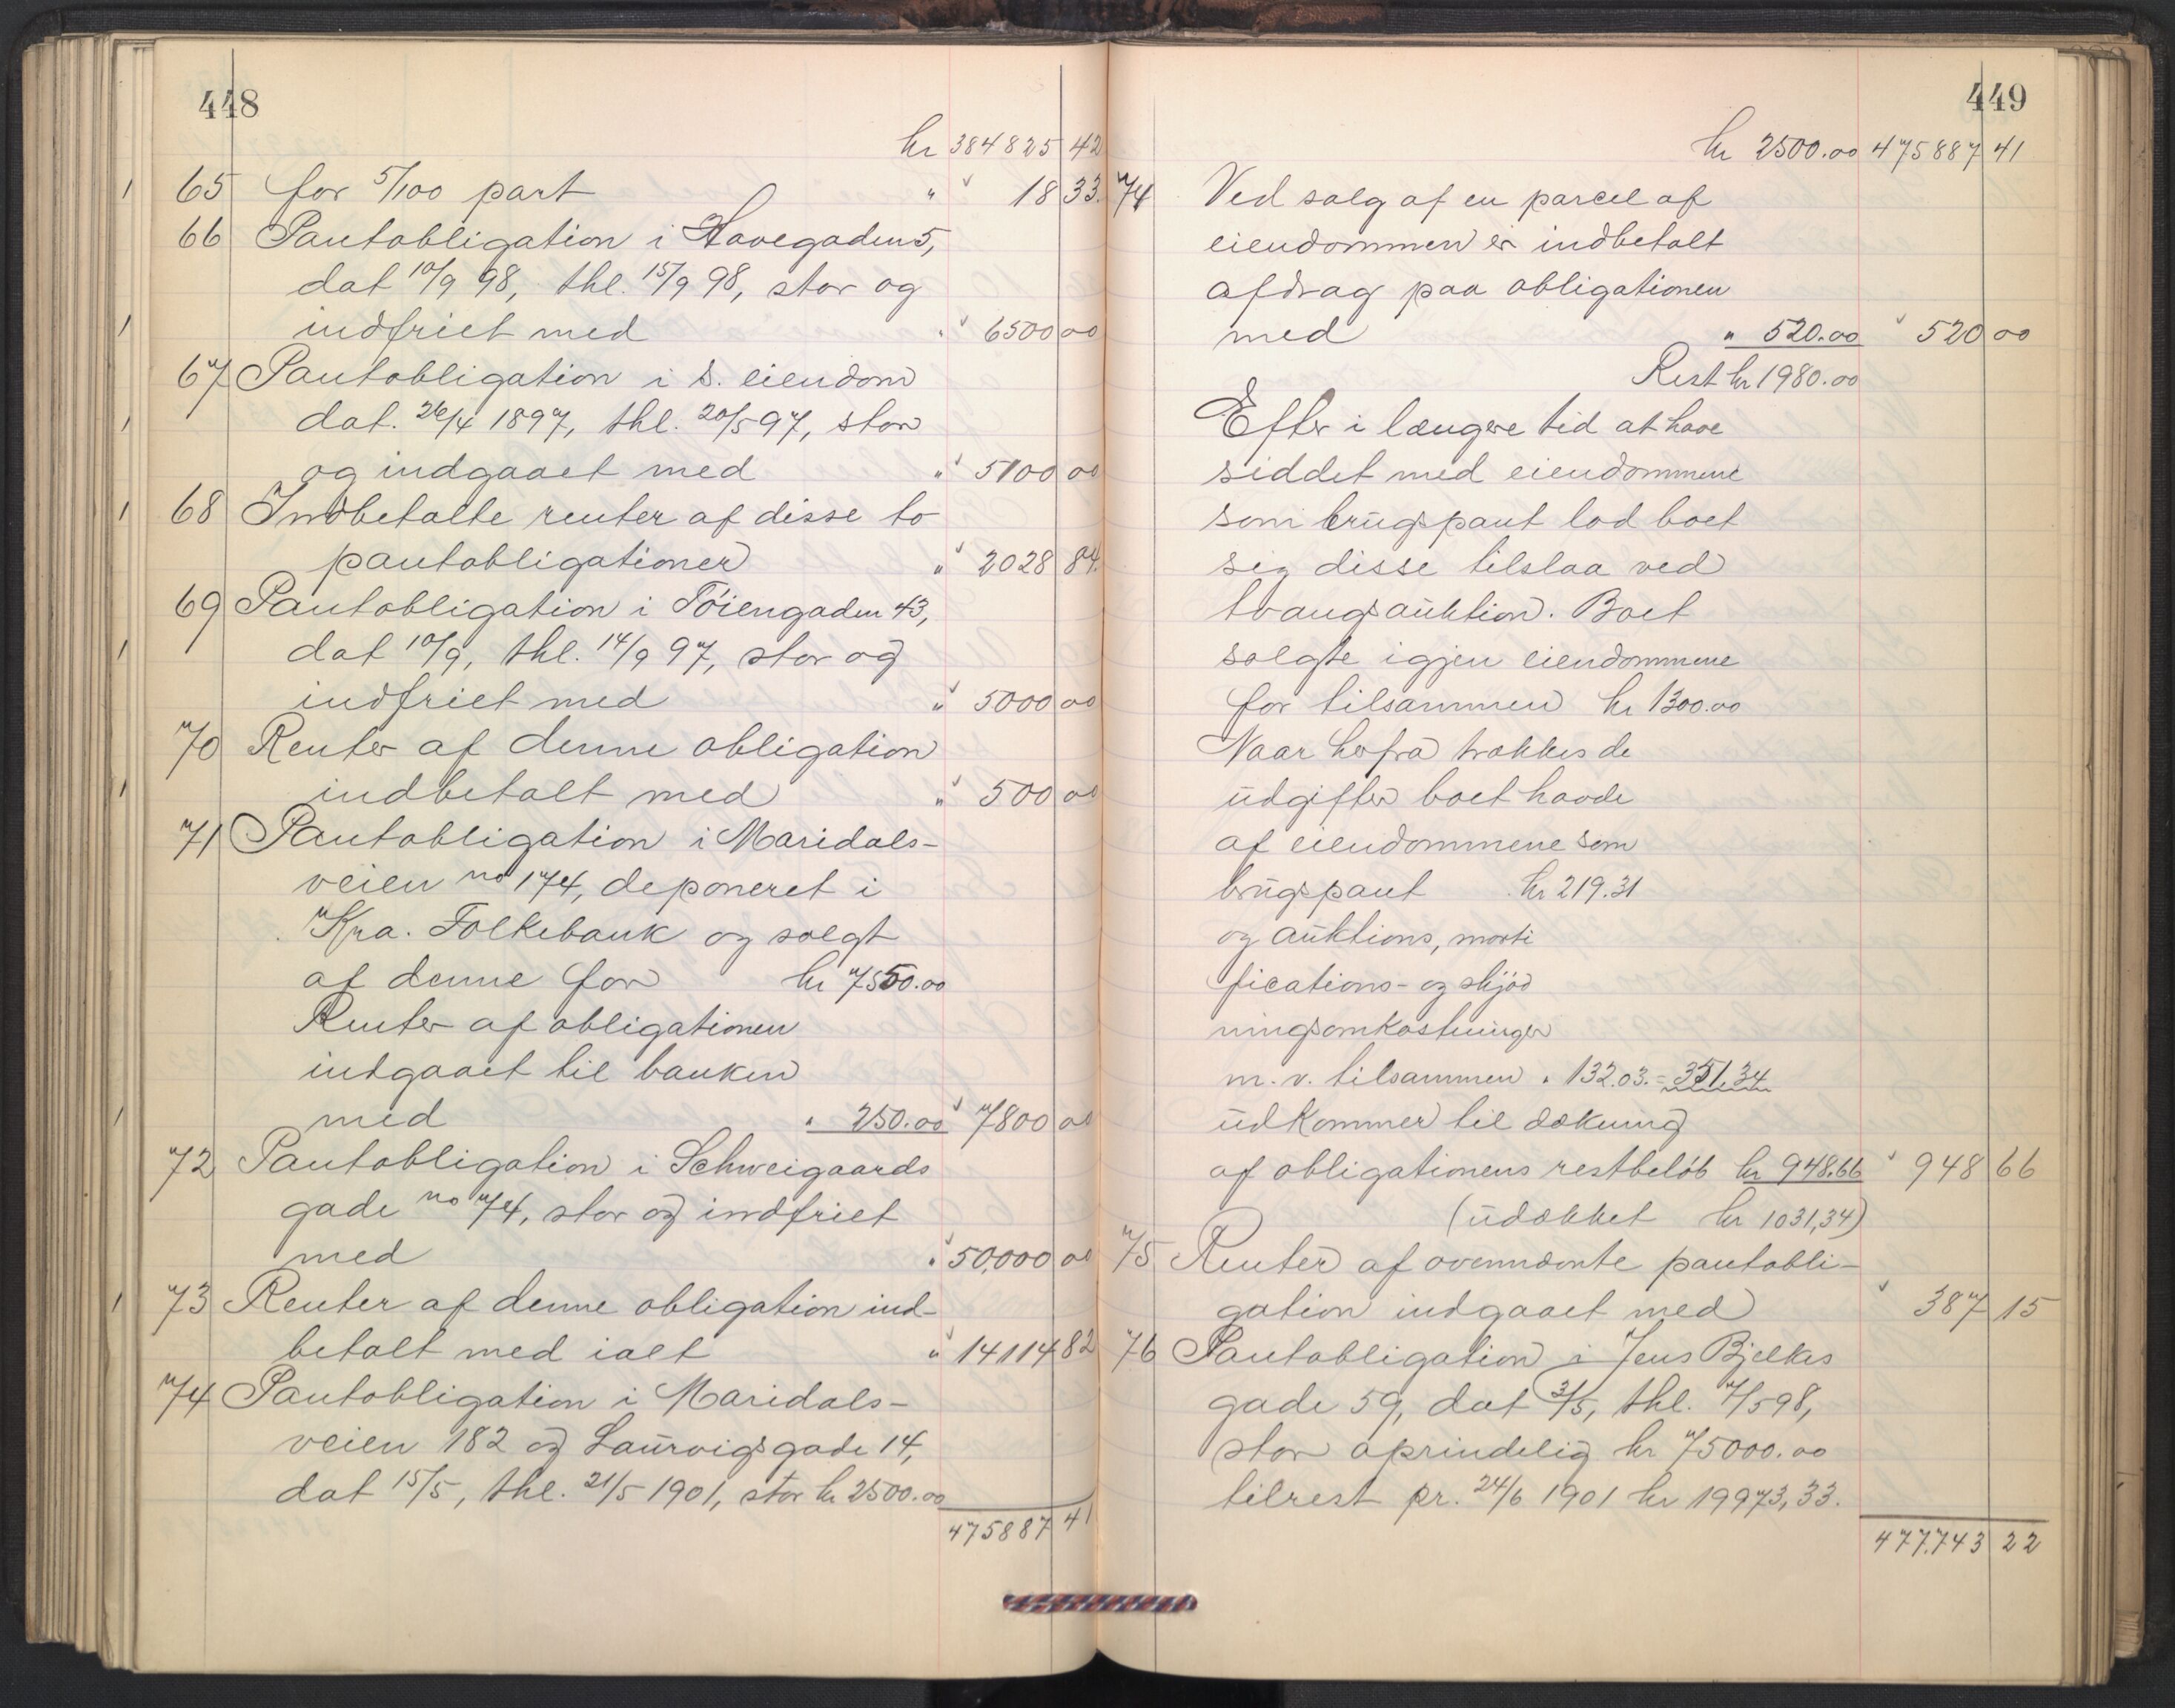 448
kr 384825 42
65 for 5/100 part " 18 33.
66 Pantobligation i Havegaden 5,
dat 10/9 98, thl. 15/9 98, stor og
indfriet med " 6500 00
67 Pantobligation i s. eiendom
dat. 26/4 1897, thl. 20/5 97, stor
og indgaaet med " 5100 00
68 Indbetalte renter af disse to
pantobligationer " 2028 84.
69 Pantobligation i Töiengaden 43,
dat 10/9, thl. 14/9 97, stor og
indfriet med " 5000 00
70 Renter af denne obligation
indbetalt med " 500 00
71 Pantobligation i Maridals-
veien no 174, deponeret i
Kra. Folkebank og solgt
af denne for kr 7550.00
Renter af obligationen
indgaaet til banken
med " 250.00 7800 00
72 Pantobligation i Schweigaards
gade no 74, stor og indfriet
med " 50,000 00
73 Renter af denne obligation ind-
betalt med ialt " 14114 82
74 Pantobligation i Maridals-
veien 182 og Laurvigsgade 14,
dat 15/5, thl. 21/5 1901, stor kr 2500.00
475887 41
449
kr 2500.00 475887 41
74 Ved salg af en parcel af
eiendommen er indbetalt
afdrag paa obligationen
med " 520.00 520 00
Rest kr 1980.00
Efter i længere tid at have
siddet med eiendommene
som brugspant lod boet
sig disse tilslaa ved
tvangsauktion. Boet
solgte igjen eiendommene
for tilsammen kr 1300.00
Naar herfra trækkes de
udgifter boet havde
af eiendommene som
brugspant kr 219.31
og auktions, morti
fications- og skjød
ningsomkostninger
m. v. tilsammen " 132.03. = 351,34
udkommer til dækning
af obligationens restbeløb kr 948.66 948 66
(udækket kr 1031,34)
75 Renter af ovennævnte pantobli-
gation indgaaet med 387 15
76 Pantobligation i Jens Bjelkes
gade 59, dat 3/5, thl. 7/5 98,
stor oprindelig kr 75000.00
tilrest pr. 24/6 1901 kr 19973,33.
477.743 22